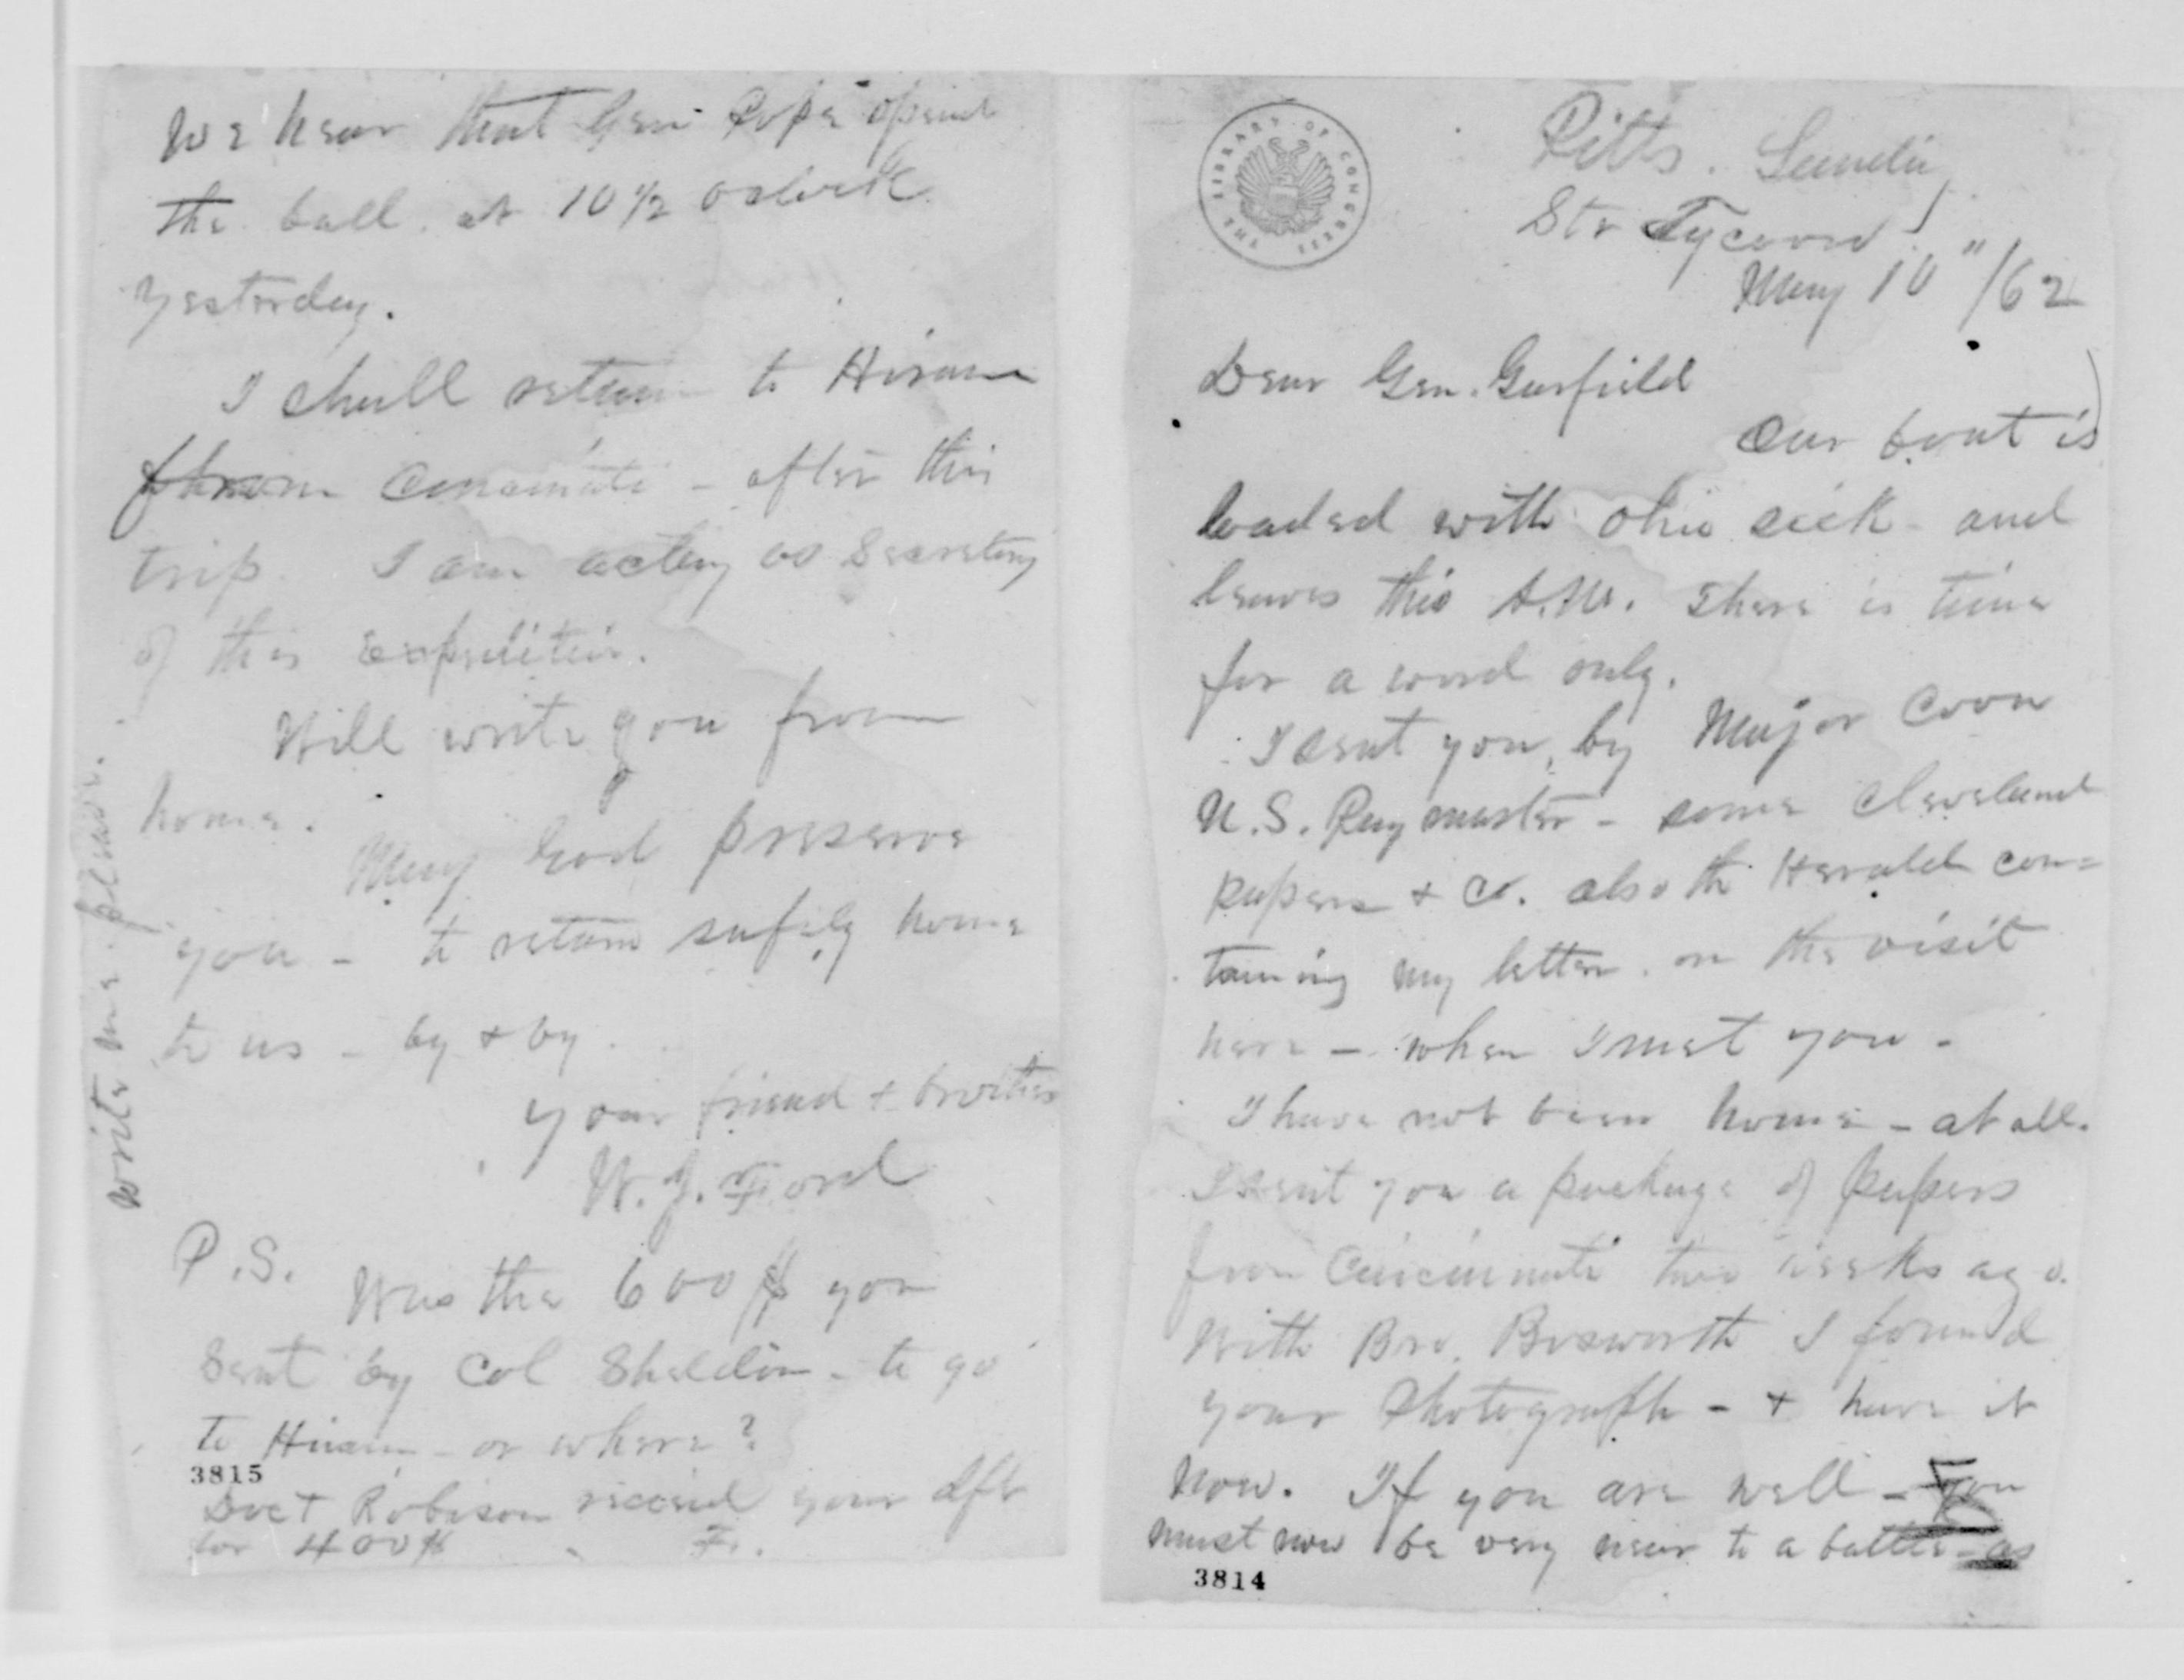 Pitts. Landin
Str Tycoon
May 10"/62
Dear Gen. Garfield
Our boat is
loaded with Ohio sick - and
leaves this A.M. There is time
for a word only.
I sent you, by Major Coon
U.S. Paymaster - some Cleveland
papers + c. also the Herald con=
taining my letter on the visit
here - when I met you -
I have not been home - at all.
I sent you a package of papers
from Cincinnati two weeks ago.
With Bro. Bosworth I found
your Photograph - + have it
now. If you are well - you
must now be very near to a battle - as
3814
We hear that Gen Pope opened
the ball at 10 1/2 oclock
yesterday.
I shall return to Hiram
from Cincinnati - after this
trip. I am acting as Secretary
of this expedition.
Will write you from
home.
May God preserve
you - to return safely home
to us - by + by.
Your friend + brother
W. J. Ford
P.S.
Was the 600 $ you
sent by Col Sheldon - to go
to Hiram - or where?
3815
Doct Robison received your dft
for 400$ F.
write me please.
THE LIBRARY OF CONGRESS